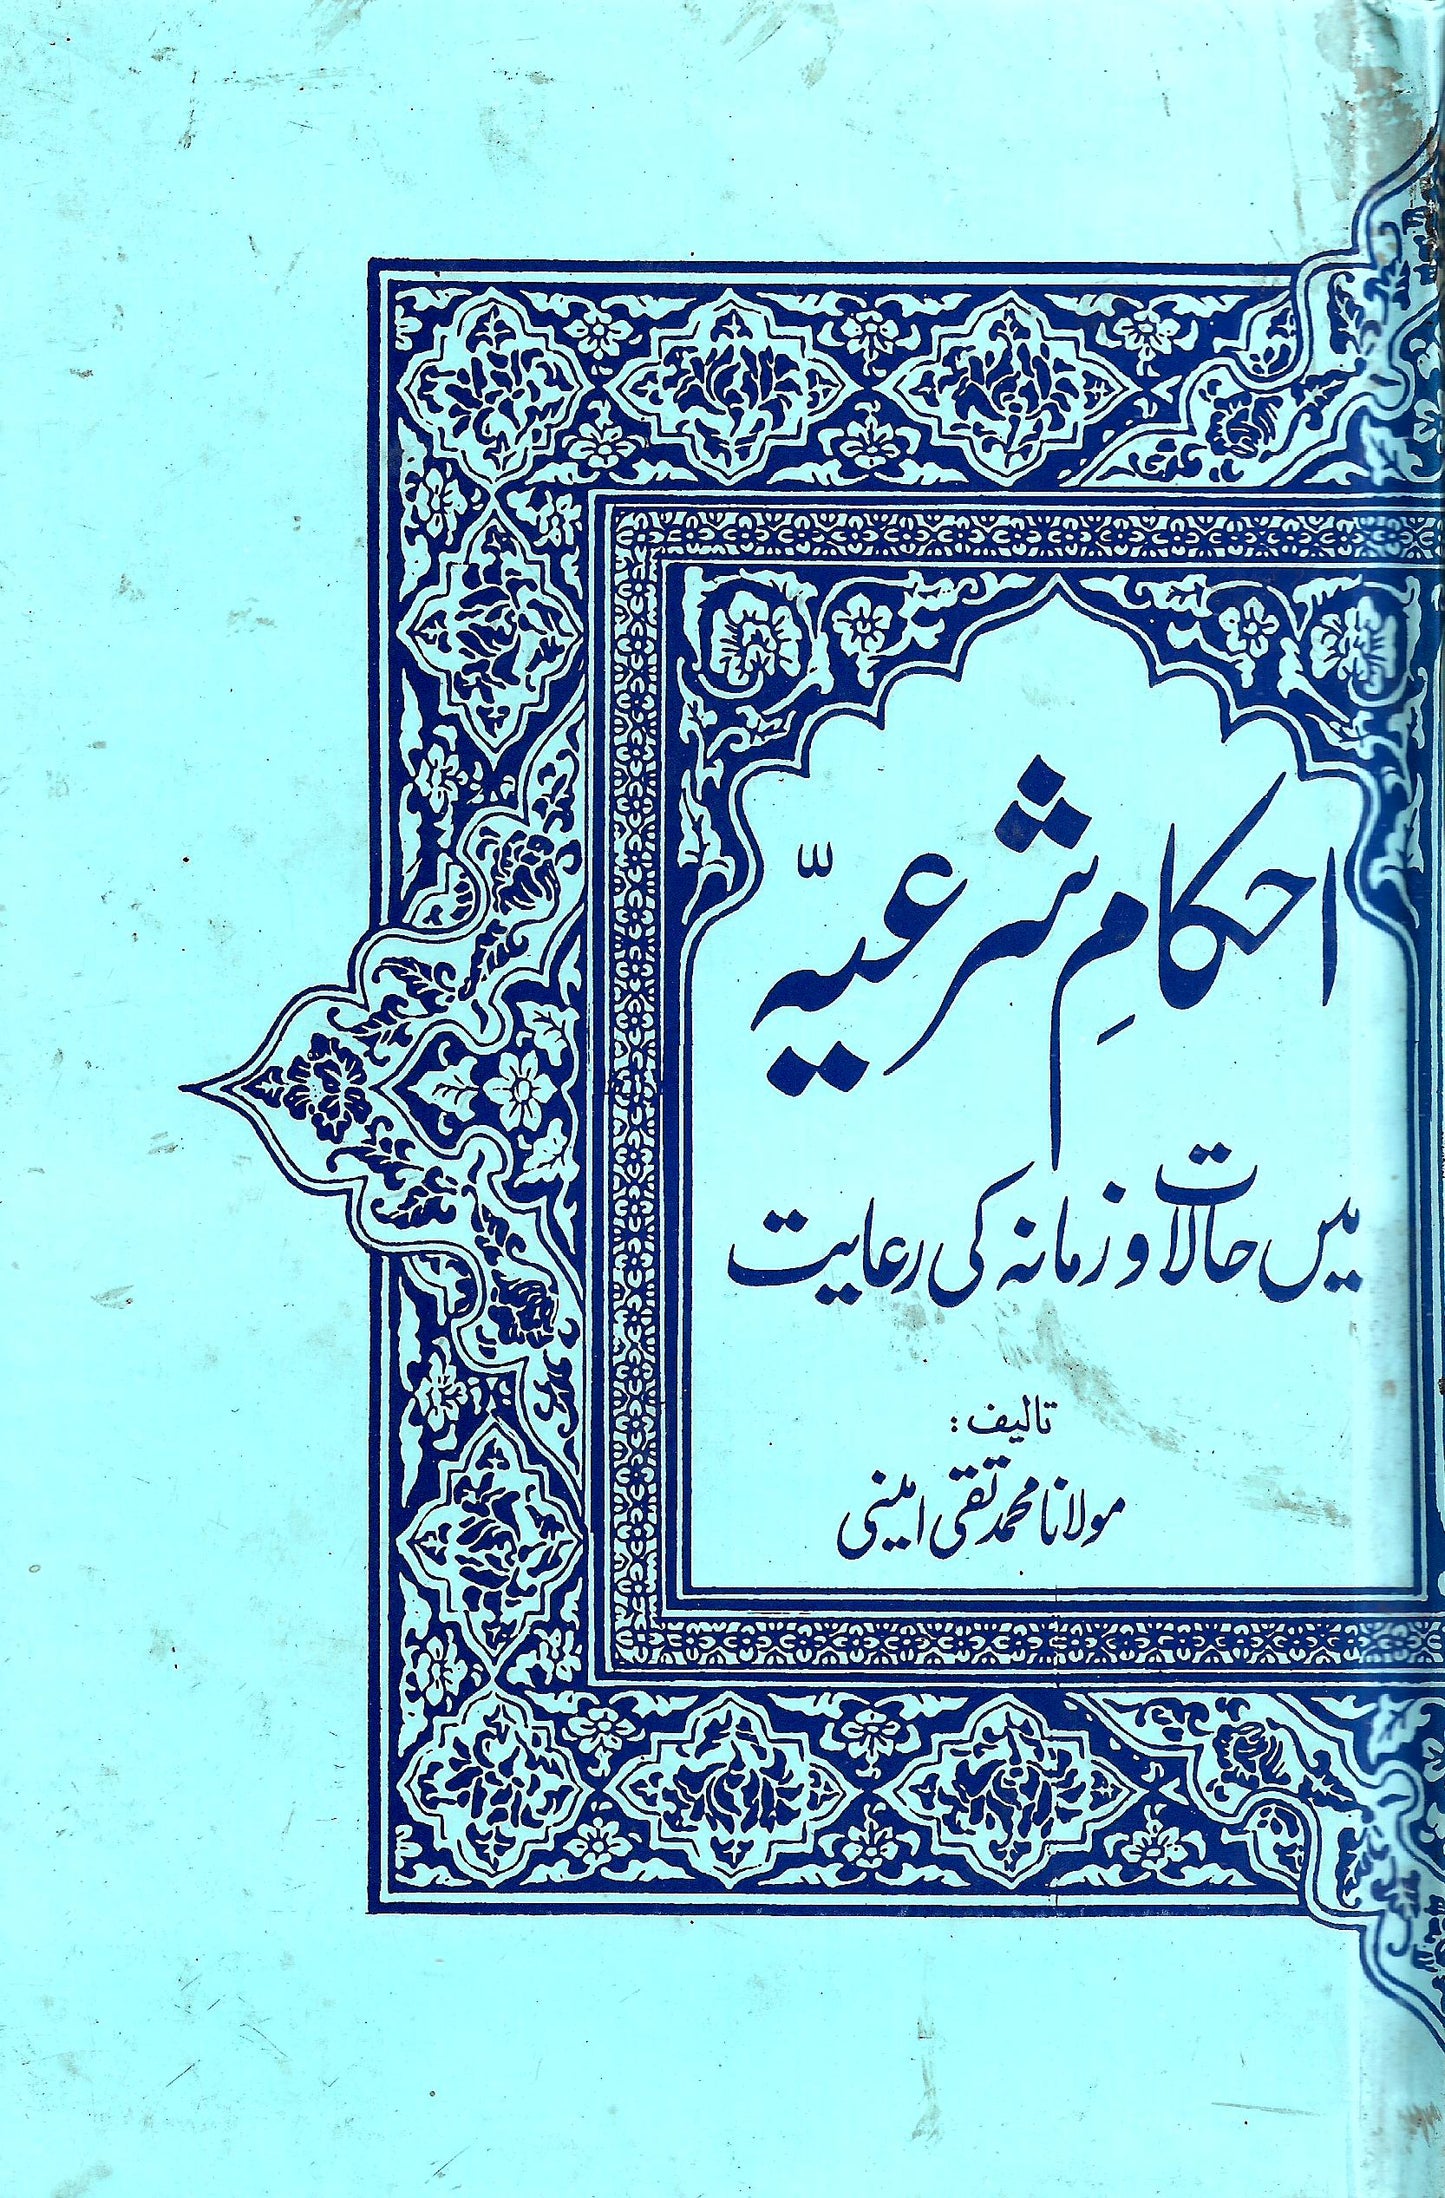 احکامِ شرعیہّ
میں حالات و زمانہ کی رعایت
تالیف:
مولانا محمد تقی امینی